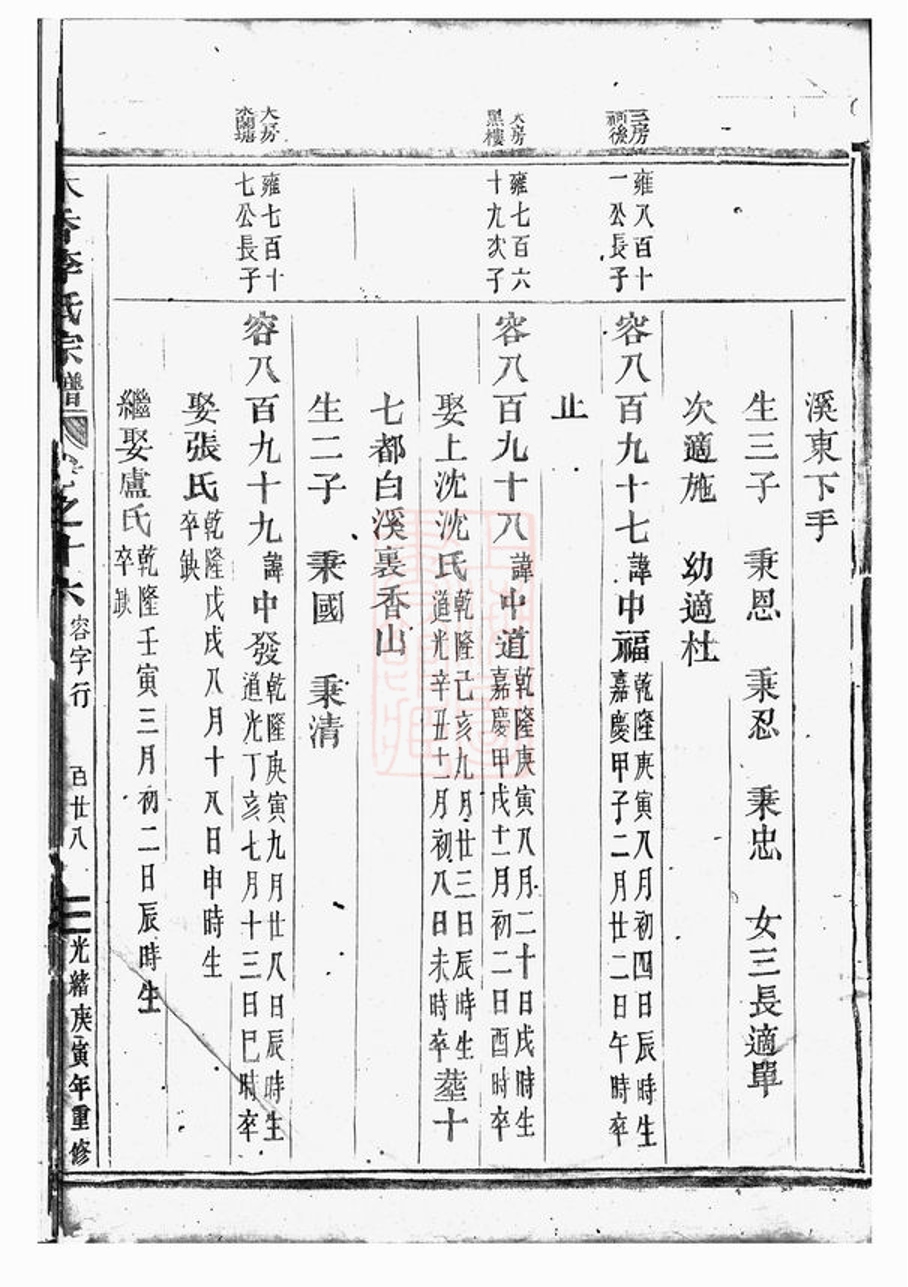 溪東下手
生三子 秉恩 秉忍 秉忠 女三長適單
次適施 幼適杜
三房
祠後
雍八百十
一公長子
容八百九十七諱中福
乾隆庚寅八月初四日辰時生
嘉慶甲子二月廿二日午時卒
止
大房
黑樓
雍七百六
十九次子
容八百九十八諱中道
乾隆庚寅八月二十日戌時生
嘉慶甲戌十一月初二日酉時卒
娶上沈沈氏
乾隆己亥九月廿三日辰時生
道光辛丑十一月初八日未時卒
塟十
七都白溪裏香山
生二子 秉國 秉清
大房
雍七百十
七公長子
容八百九十九諱中發
乾隆庚寅九月廿八日辰時生
道光丁亥七月十三日巳時卒
娶張氏
乾隆戊戌八月十八日申時生
卒缺
繼娶盧氏
乾隆壬寅三月初二日辰時生
卒缺
李氏宗譜
卷之十六
容字行
百廿八
光緒庚寅年重修